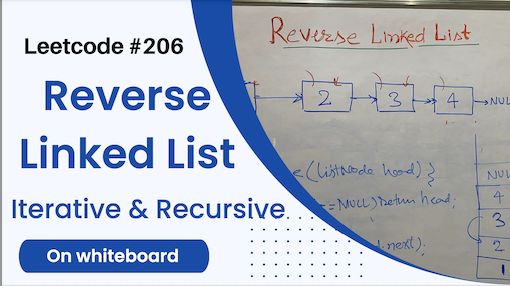 Leetcode #206
Reverse
Linked List
Iterative & Recursive
On whiteboard
Reverse Linked List
2 3 4 NULL
(ListNode head) }
== NULL) return head;
.next).
NULL
4
3
2
1